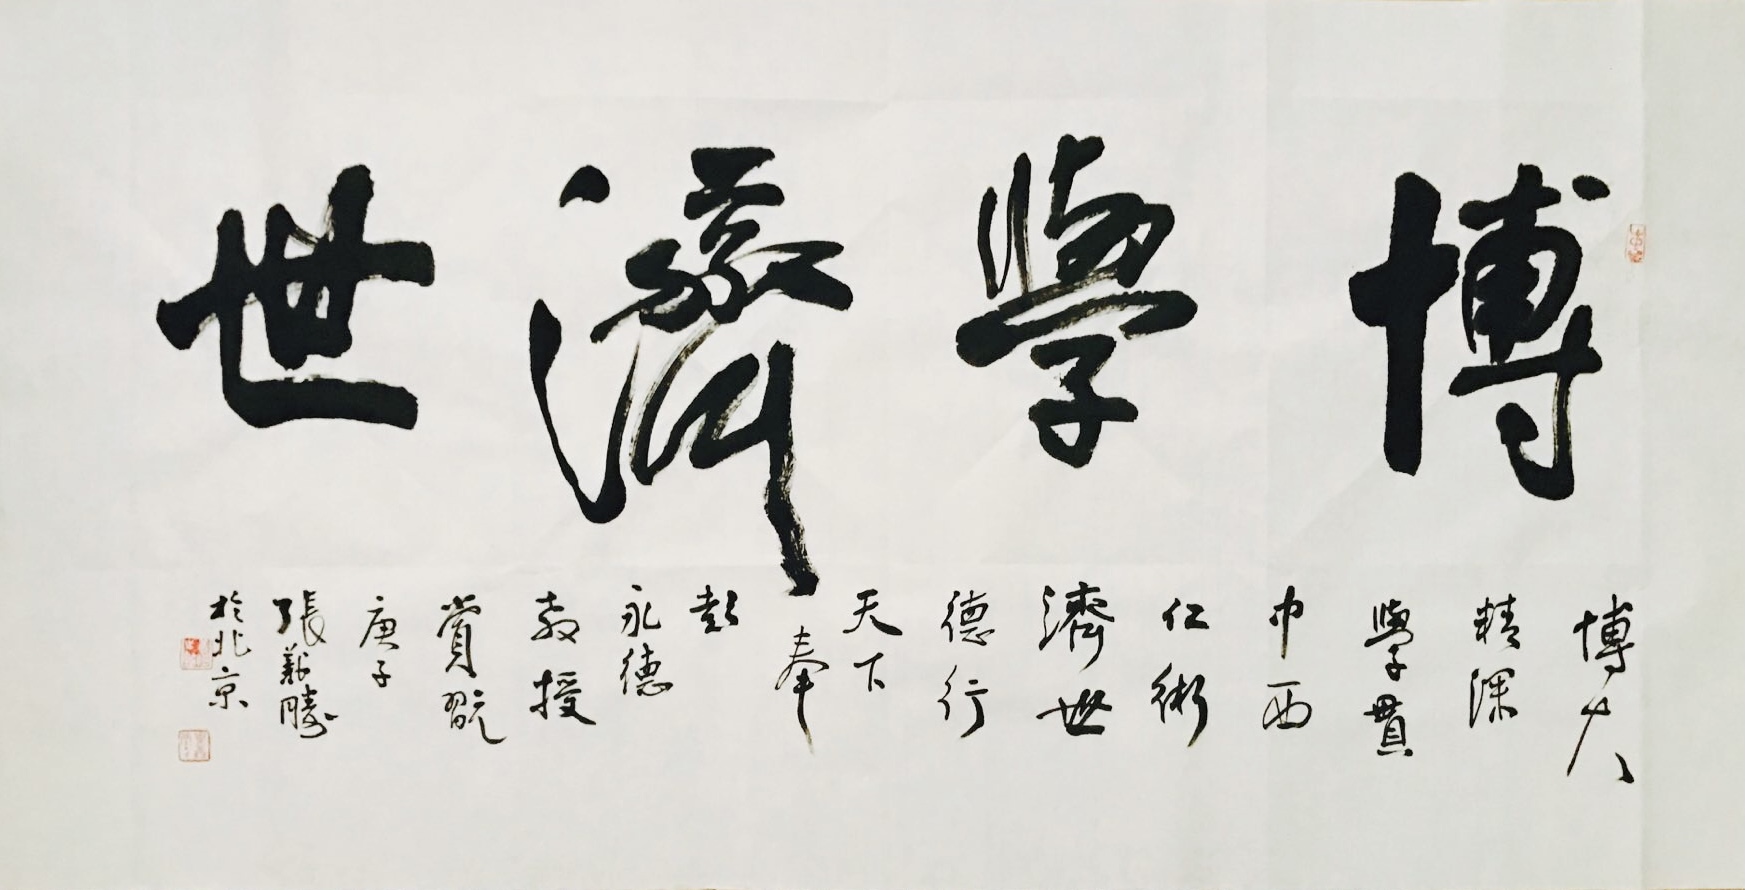 博學濟世
博大
精深
學貫
中西
仁術
濟世
德行
天下
奉
彭
永德
教授
賞翫
庚子
張勝
於北京